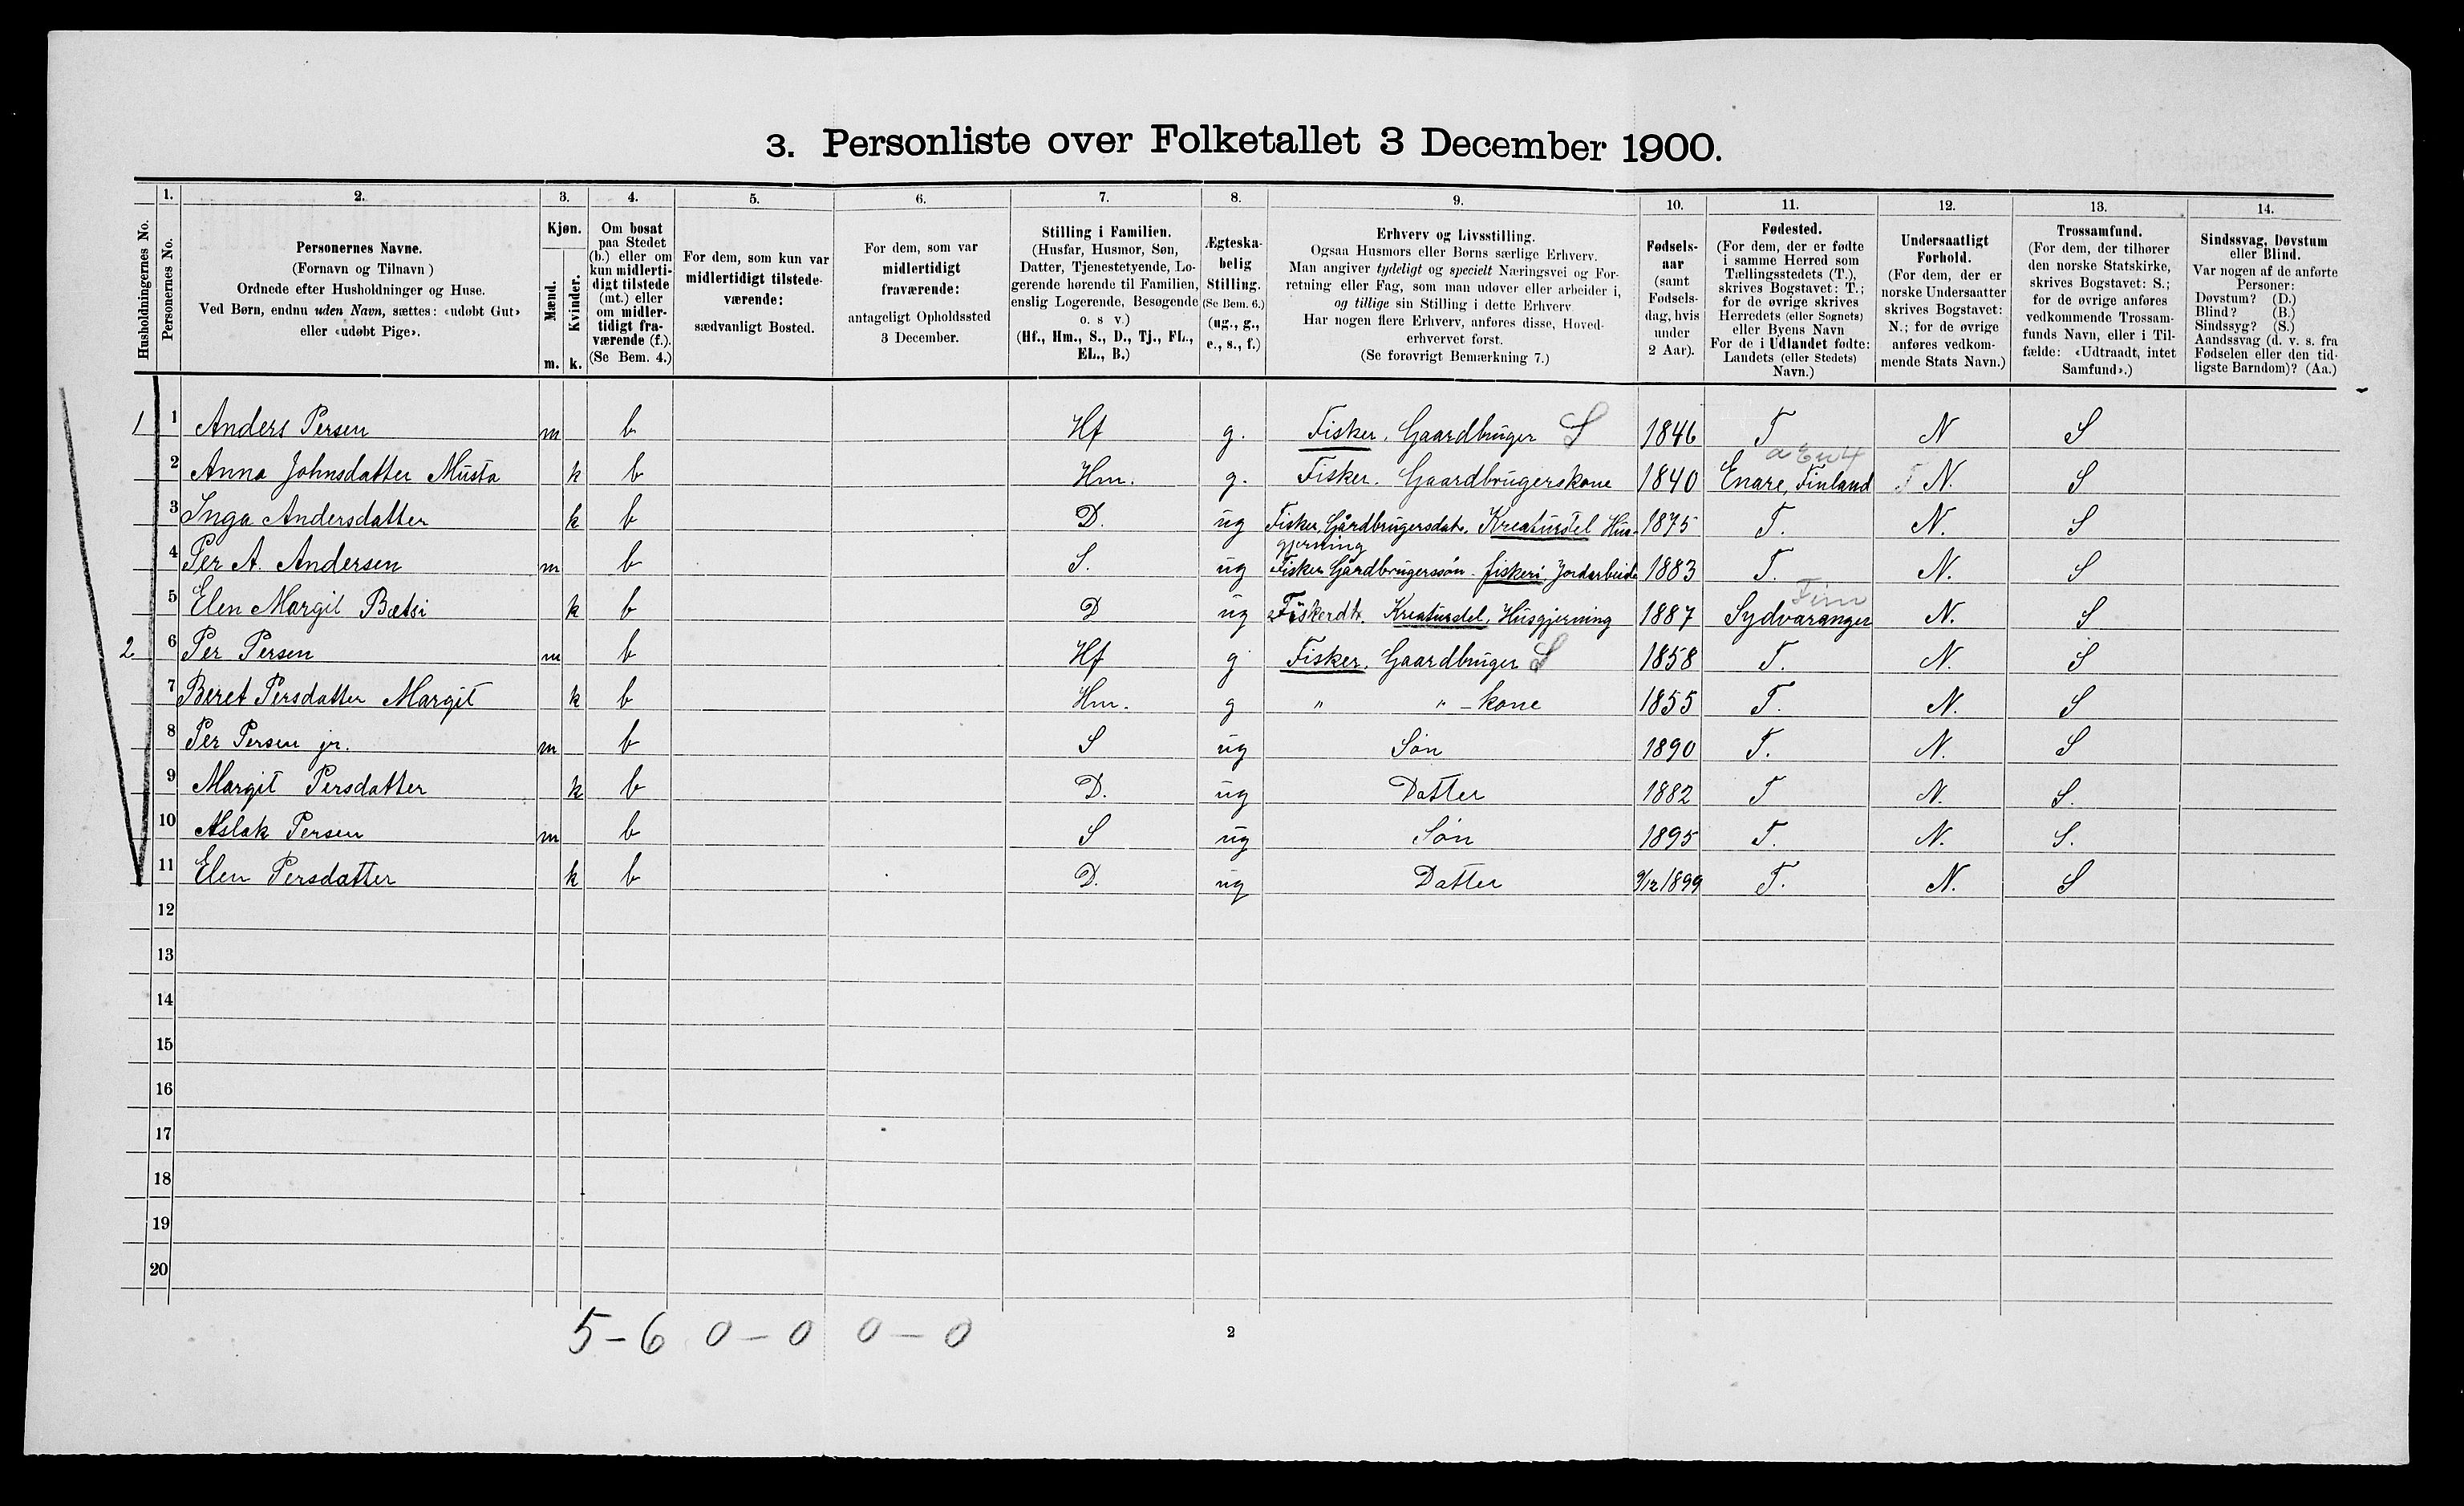 3. Personliste over Folketallet 3 December 1900.
Husholdningernes No.
1. Personernes No.
2. Personernes Navne.
(Fornavn og Tilnavn )
Ordnede efter Husholdninger og Huse.
Ved Børn, endnu uden Navn, sættes: «udøbt Gut»
eller «udøbt Pige».
3. Kjøn.
Mænd. m.
Kvinder. k.
4. Om bosat
paa Stedet
(b.) eller om
kun midlerti-
digt tilstede
(mt.) eller
om midler-
tidigt fra-
værende (f.).
(Se Bem. 4.)
5. For dem, som kun var
midlertidigt tilstede-
værende:
sædvanligt Bosted.
6. For dem, som var
midlertidigt
fraværende:
antageligt Opholdssted
3 December.
7. Stilling i Familien.
(Husfar, Husmor, Søn,
Datter, Tjenestetyende, Lo-
gerende hørende til Familien,
enslig Logerende, Besøgende
o. s v.)
(Hf., Hm., S., D., Tj., FL.,
EL., B.)
8. Ægteska-
belig
Stilling.
(Se Bem. 6.)
(ug., g.,
e., s., f.)
9. Erhverv og Livsstilling.
Ogsaa Husmors eller Børns særlige Erhverv.
Man angiver tydeligt og specielt Næringsvei og For-
retning eller Fag, som man udøver eller arbeider i,
og tillige sin Stilling i dette Erhverv
Har nogen flere Erhverv, anføres disse, Hoved-
erhvervet først.
(Se forøvrigt Bemærkning 7.)
10. Fødsels-
aar
(samt
Fødsels-
dag, hvis
under
2 Aar).
11. Fødested.
(For dem, der er fødte
i samme Herred som
Tællingsstedets (T.),
skrives Bogstavet: T.;
for de øvrige skrives
Herredets (eller Sognets)
eller Byens Navn
For de i Udlandet fødte:
Landets (eller Stedets)
Navn.)
12. Undersaatligt
Forhold.
(For dem, der er
norske Undersaatter
skrives Bogstavet:
N.; for de øvrige
anføres vedkom-
mende Stats Navn.)
13. Trossamfund.
(For dem, der tilhører
den norske Statskirke,
skrives Bogstavet: S.;
for de øvrige anføres
vedkommende Trossam-
funds Navn, eller i Til-
fælde: «Udtraadt, intet
Samfund».)
14. Sindssvag, Døvstum
eller Blind.
Var nogen af de anførte
Personer:
Døvstum? (D.)
Blind? (B.)
Sindssyg? (S.)
Aandssvag (d. v. s. fra
Fødselen eller den tid-
ligste Barndom)? (Aa.)
1 1 Anders Persen m b Hf g. Fisker. Gaardbruger S 1846 T N S
2 Anna Johnsdatter Musta k b Hm. g. Fisker. Gaardbrugerskone 1840 Enare, Finland N. S
3 Inga Andersdatter k b D. ug Fisker, Gårdbrugersdat. Kreaturstel Hus-
gjerning 1875 T. N. S
4 Per A. Andersen m b S. ug Fisker Gårdbrugerssøn. fiskeri. Jordarbeide 1883 T. N. S
Finn
5 Elen Margit Bætsi k b D ug Fiskerdt. Kreaturstel, Husgjerning 1887 Sydvaranger N. S
2 6 Per Persen m b Hf g Fisker. Gaardbruger S 1858 T. N. S
7 Beret Persdatter Margit k b Hm. g " " -kone 1855 T. N. S
8 Per Persen jr. m b S ug Søn 1890 T. N. S
9 Margit Persdatter k b D. ug Datter 1882 T N. S.
10 Aslak Persen m b S ug Søn 1895 T. N. S.
11 Elen Persdatter k b D. ug Datter 9/12 1899 T. N. S
12
13
14
15
16
17
18
19
20
5-6 0-0 0-0
2